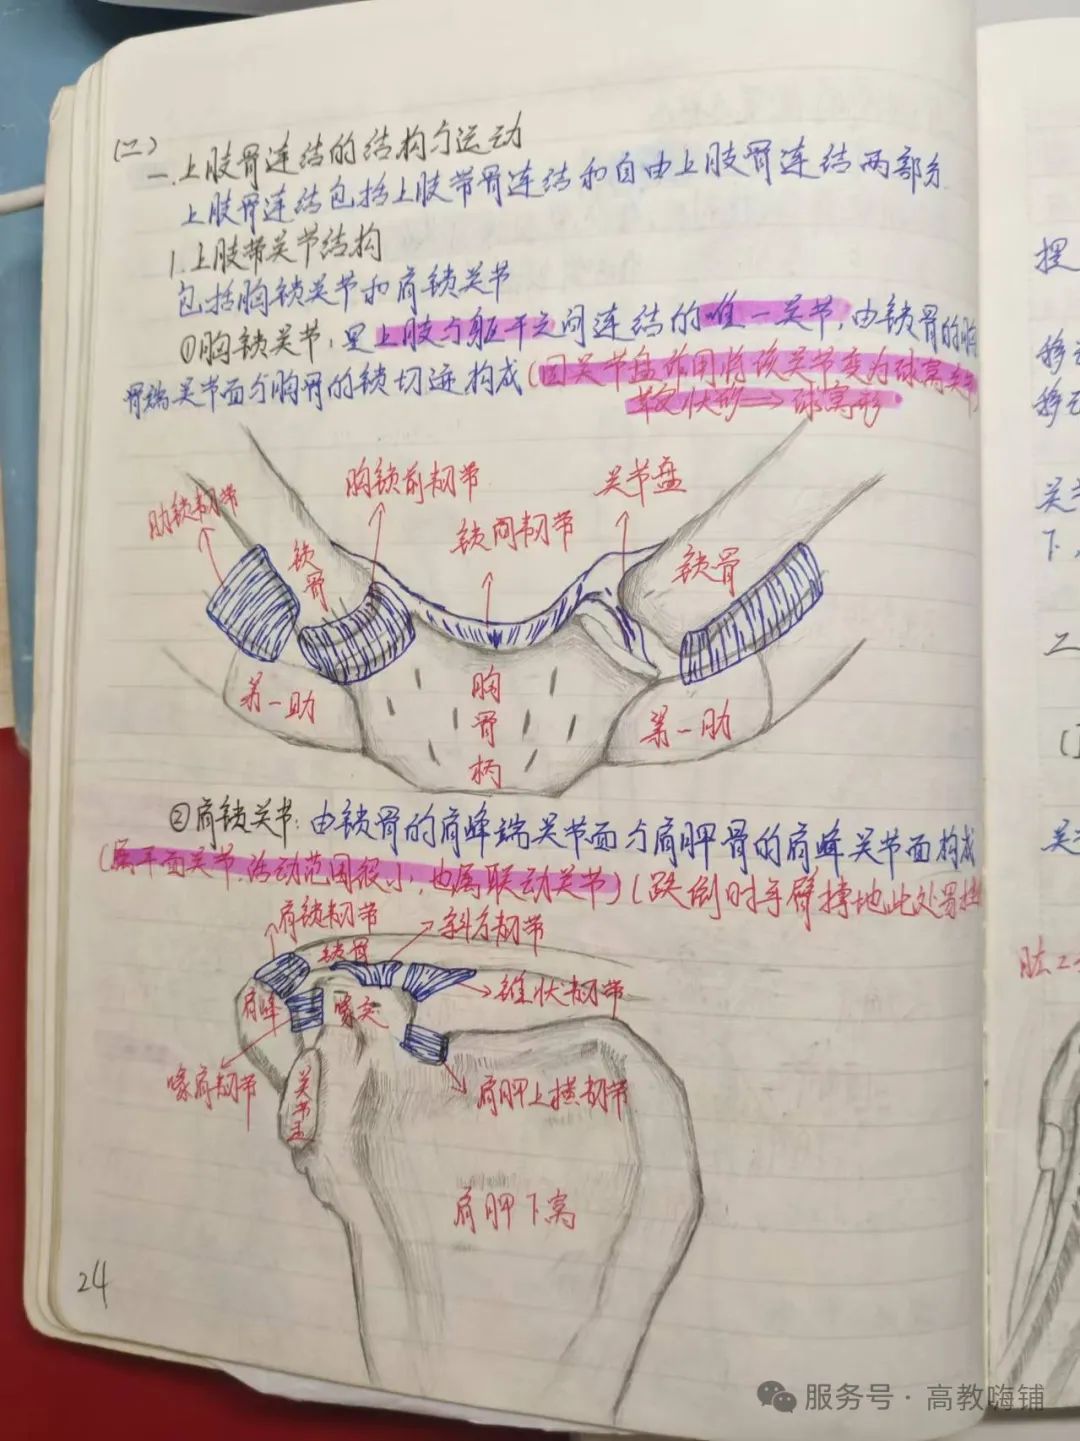 (二)
一.上肢骨连结的结构与运动
上肢骨连结包括上肢带骨连结和自由上肢骨连结两部分
1.上肢带关节结构
包括胸锁关节和肩锁关节
①胸锁关节:是上肢与躯干之间连结的唯一关节,由锁骨的胸
骨端关节面与胸骨的锁切迹构成(因关节盘作用将该关节变为球窝关节
鞍状形⟹球窝形
肋锁韧带
胸锁前韧带
锁间韧带
关节盘
锁骨
锁骨
第一肋
胸骨柄
第一肋
②肩锁关节:由锁骨的肩峰端关节面与肩胛骨的肩峰关节面构成
(属平面关节,活动范围很小,也属联动关节)(跌倒时手臂撑地此处易挫
肩锁韧带
锁骨
斜方韧带
锥状韧带
肩峰
喙突
喙肩韧带
关节盂
肩胛上横韧带
肩胛下窝
24
摆
移
移
关
下,
二
关
肱二
服务号·高教嗨铺